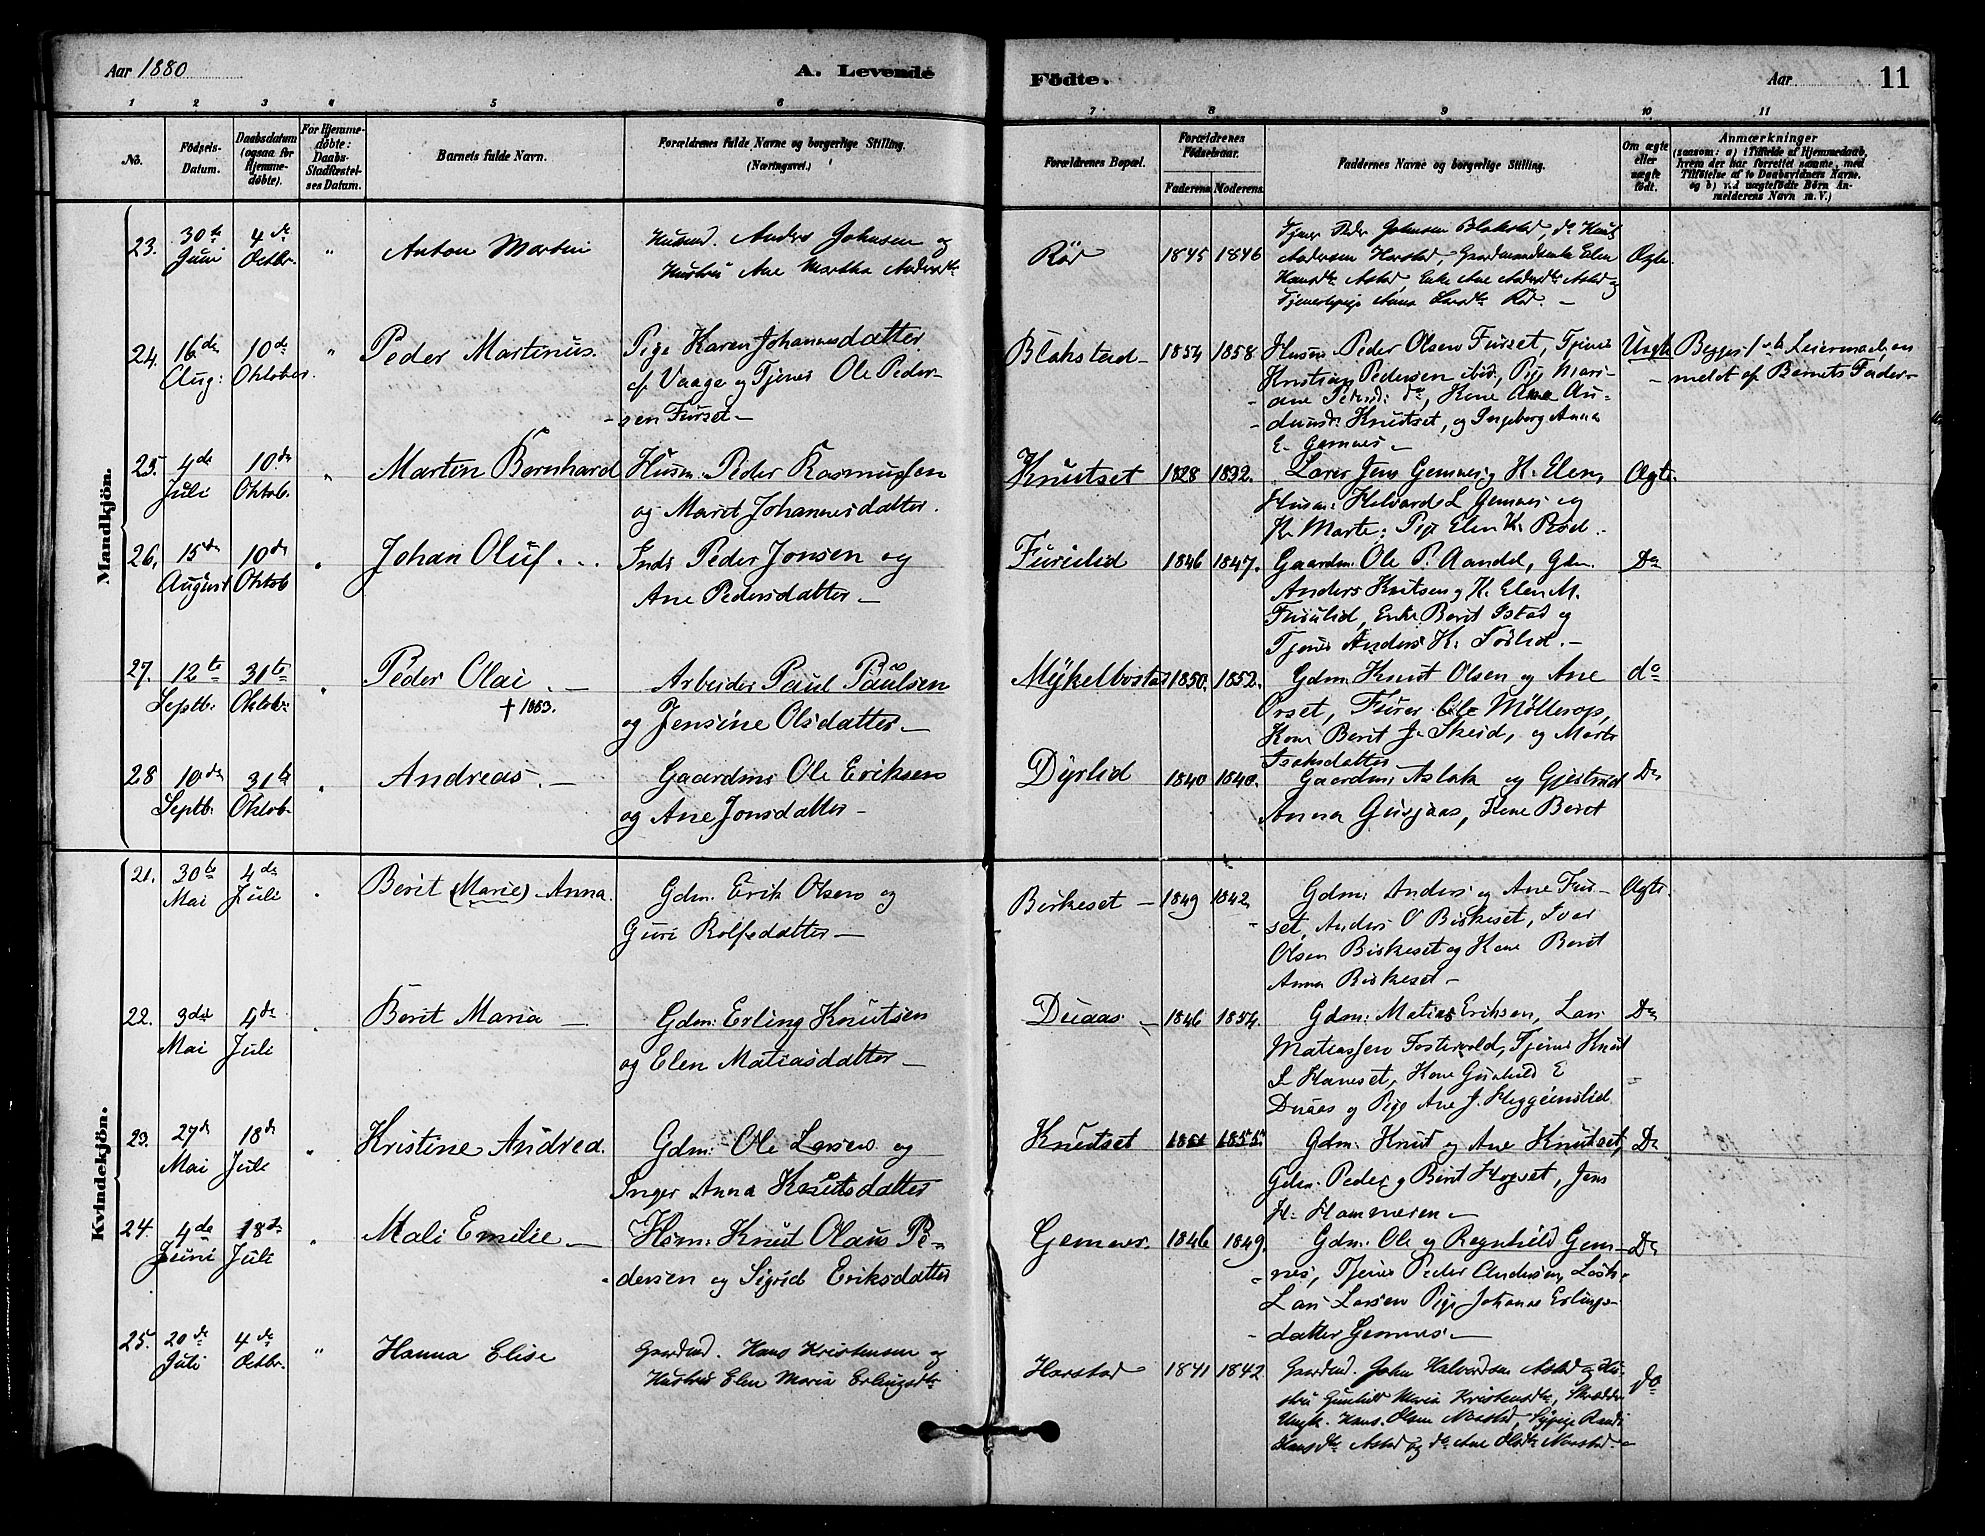 Aar 1880
A. Levende
Födte.
Aar
11
1 2 3 4 5 6 7 8 9 10 11
No.
Födsels-
Datum.
Daabsdatum
(ogsaa for
Hjemme-
döbte).
For Hjemme-
döbte:
Daabs-
Stadfæstel-
ses Datum.
Barnets fulde Navn.
Forældrenes fulde Navne og borgerlige Stilling.
(Næringsvei.)
Forældrenes Bopæl.
Forældrenes
Födselsaar.
Faderens Moderens.
Faddernes Navne og borgerlige Stilling.
Om ægte
eller
uægte
födt.
Anmærkninger
(saasom: a) i Tilfælde af Hjemmedaab,
hvem der har forrettet samme, med
Tilföielse af to Daabsvidners Navne.
og b) ved uægtefödte Börn An-
melderens Navn m. V.)
Mandkjön.
23. 30te Juni 4de Octbr. " Anton Martin
Husmd. Anders Johnsen og
Hustru Ane Martha Andersdtr
Röd 1845 1846
Tjener Peder Johnsen Blakstad, do Knut
Andersen Harstad, Gaardmandsenke Elen
Hansdtr Astad, Enke Ane Andersdtr Astad og
Tjenestepige Anna Larsdtr Röd. –
Ægte
24. 16de Aug: 10de Oktober. " Peder Martinus.
Pige Karen Johannesdatter
af Vaage og Tjener Ole Peder-
sen Furset –
Blakstad – 1854 1858
Husm: Peder Olsen Furset, Tjener
Kristian Pedersen ibid., Pige Mari-
ane Pedersd: do, Kone Ane Au-
dunsdr Knutset, og Ingeborg Anna
E. Gemnes –
Uægte
Begges 1ste Leiermaal, an
meldt af Barnets Fader –
25. 4de Juli 10de Oktob. " Marten Bernhard
Husm: Peder Rasmussen
og Marit Johannesdatter.
Knutset 1828 1832.
Lærer Jens Gemnes og H. Elen,
Husm: Halvard L Gemnes og
K. Marte; Pige Elen K. Röd.
Ægte.
26. 15de August 10de Oktob " Johan Oluf
Inds. Peder Jonsen og
Ane Pedersdatter –
Furulid 1846 1847.
Gaardm: Ole P. Aandal, Gdm.
Anders Knutsen og K. Elen M.
Furulid, Enke Berit Istad og
Tjener Anders K. Forlid. –
Do
27. 12te Septb. 31te Oktob: " Peder Olai –
† 1883.
Arbeider Paul Paulsen
og Jensine Olsdatter –
Mykelbostad 1850. 1852.
Gdm: Knut Olsen og Ane
Orset, Furer Ole Möllerop,
Kone Berit J. Skeid, og Marte
Isaksdatter
do
28 10de Septb. 31te Oktob. " Andreas. –
Gaardms Ole Eriksen
og Ane Jonsdatter –
Dyrlid 1840 1840.
Gaardm: Aslak og Gjertrud
Anna Gusjaas, Kone Beret
Do
Kvindekjön.
21. 30te Mai 4de Juli " Berit (Marie) Anna.
Gdm: Erik Olsen og
Guri Rolfsdatter –
Birkeset – 1849 1842
Gdm: Anders og Ane Fur-
set, Anders O Birkeset, Ivar
Olsen Birkeset og Kone Berit
Anna Birkeset –
Ægte.
22. 3die Mai 4de Juli " Berit Maria –
Gdm: Erling Knutsen
og Elen Matiasdatter –
Duaas – 1846 1854
Gdm: Matias Eriksen, Lars
Matiassen Fostervold, Tjener Knut
L Haneset, Kone Gunhild E
Duaas og Pige Ane J. Heggeimslid
Do
23. 27de Mai 18de Juli " Kristine Andrea.
Gdm: Ole Larsen og
Inger Anna Knutsdatter
Knutset 1851 1855.
Gdm: Knut og Ane Knutset,
Gdm. Peder og Berit Hogset, Jens
H. Hammeren –
Do
24. 4de Juni 18de Juli " Mali Emilie –
Hsm: Knut Olaus Pe-
dersen og Sigrid Eriksdatter
Gemnes. 1846 1849.
Gdm: Ole og Regnhild Gem-
nes, Tjener Peder Andersen, Losk.
Lars Larsen Pige Johanne Erlings-
datter Gemnes –
Do
25. 20de Juli 4de Octbr. " Hanna Elise
Gaardmd. Hans Kristensen og
Hustru Elen Maria Erlingsdtr
Harstad 1841 1842
Gaardmd. John Halvardsen Astad og Hu-
stru Gunhild Maria Kristensdtr, Skrædder
Ungk. Hans Olsen Norstad, Sypige Randi
Hansdtr Astad og do Ane Olsdtr Norstad. –
do